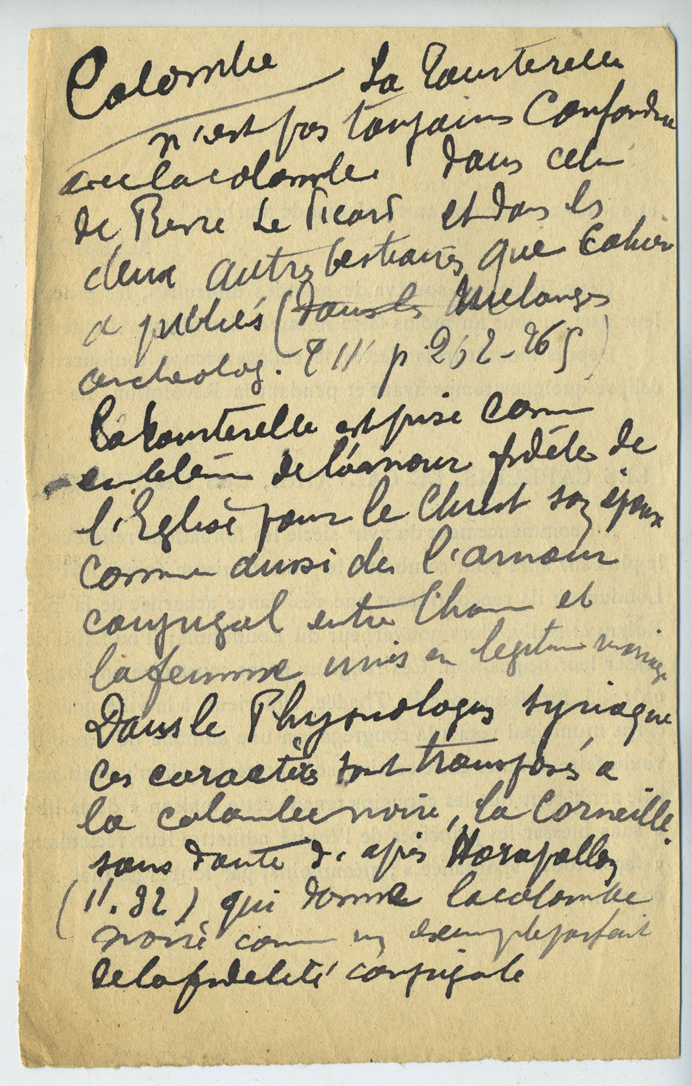 Colombe La Tourterelle
n'est pas toujours confondue
avec la colombe. Dans celui
de Pierre Le Picard et dans les
deux autres bestiaires que Cahier
a publiés (dans les Mélanges
archeolog. T II p. 262-265)
La tourterelle est prise comme
emblème de l'amour fidèle de
l'Eglise pour le Christ son époux
comme aussi de l'amour
conjugal entre l'homme et
la femme unis en légitime mariage
Dans le Physiologus syriaque
ces caractères sont transposés à
la colombe noire, la Corneille
sans doute d'après Horapollon
(II. 32) qui donne la colombe
noire comme un exemple parfait
de la fidelité conjugale